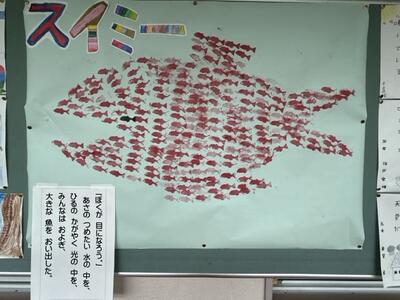 スイミー
「ぼくが 目になろう。」
あさの つめたい 水の 中を、
ひるの かがやく 光の 中を、
みんなは およぎ、
大きな 魚を おい出した。